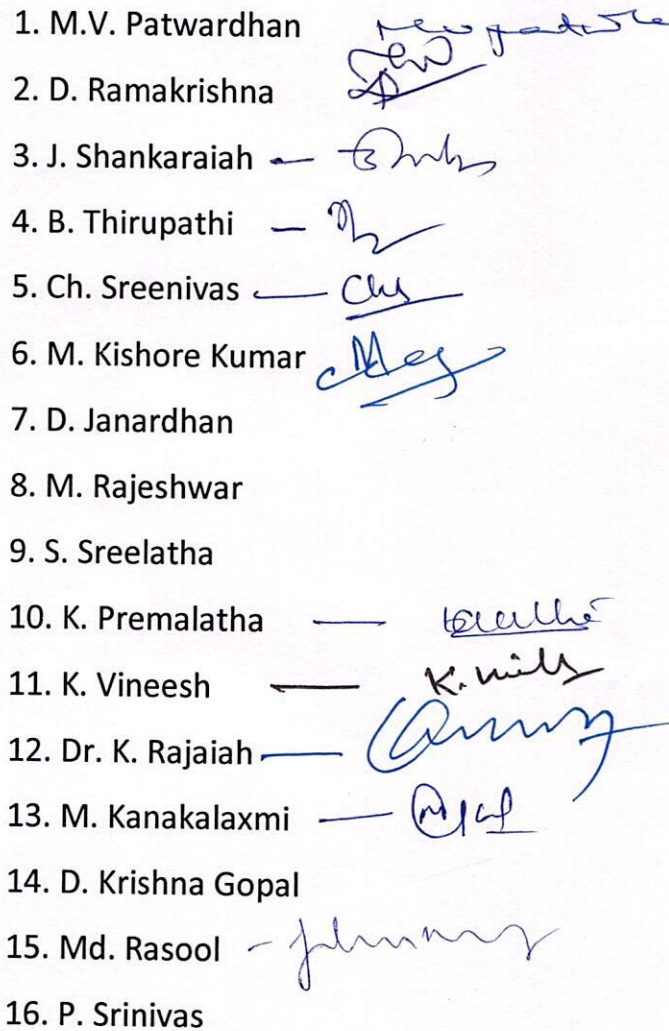 1. M.V. Patwardhan
2. D. Ramakrishna
3. J. Shankaraiah
4. B. Thirupathi
5. Ch. Sreenivas
6. M. Kishore Kumar
7. D. Janardhan
8. M. Rajeshwar
9. S. Sreelatha
10. K. Premalatha
11. K. Vineesh
12. Dr. K. Rajaiah
13. M. Kanakalaxmi
14. D. Krishna Gopal
15. Md. Rasool
16. P. Srinivas